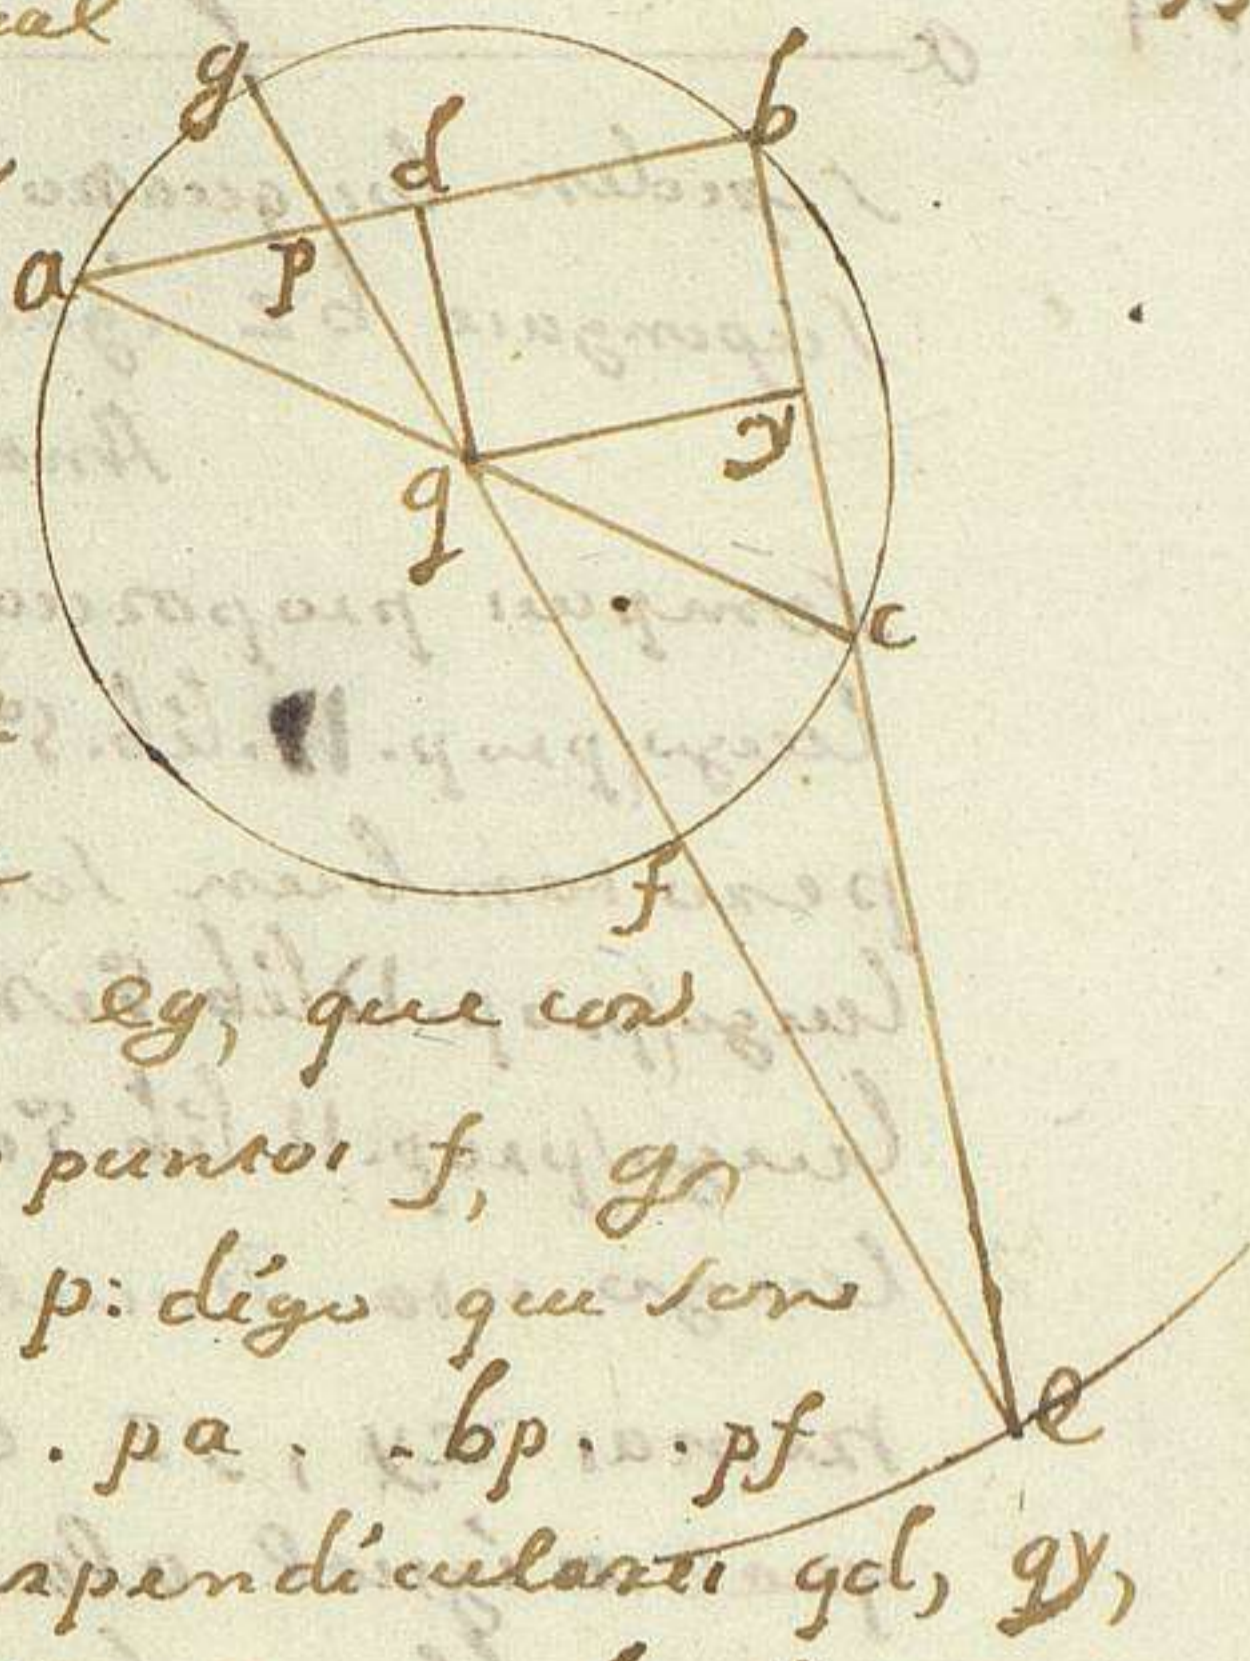 g
b
d
a
p
y
q
c
f
eg, que con
puntos f, g,
p: dígo que son
. pa . . . bp . . . pf
e
rpendiculares qd, qy,